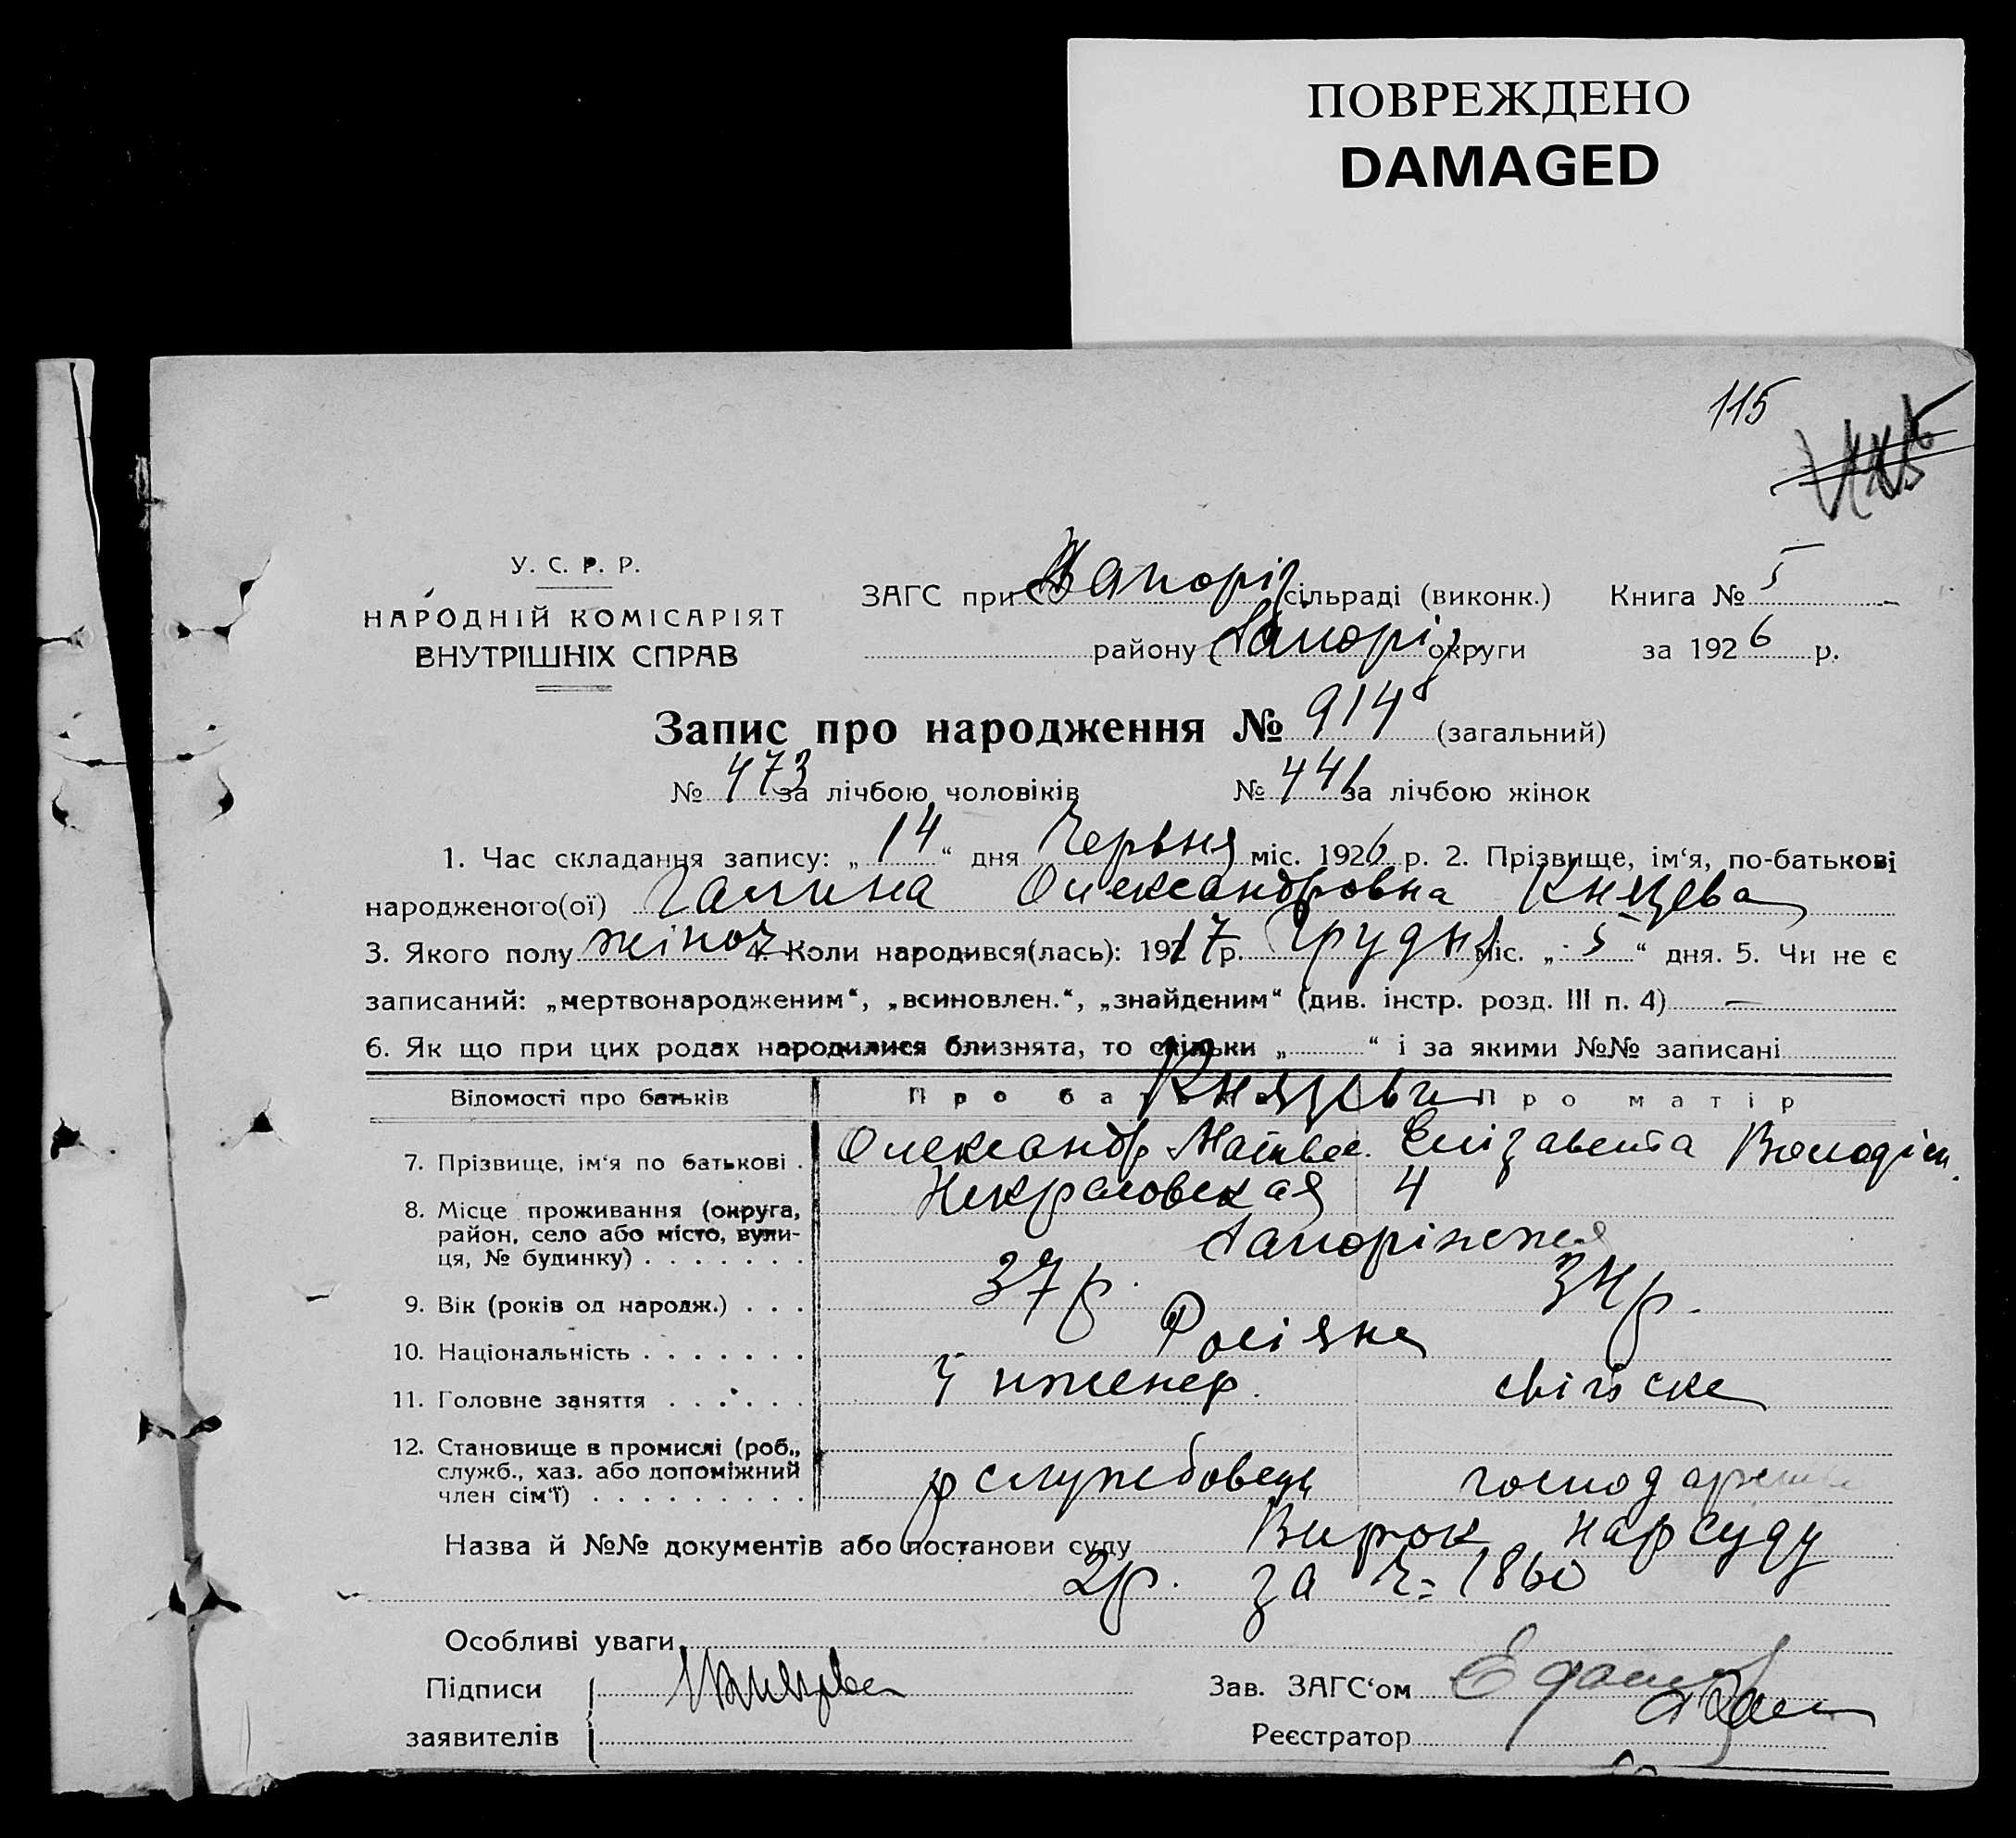 ПОВРЕЖДЕНО
DAMAGED
115
У. С. Р. Р.
НАРОДНІЙ КОМІСАРІЯТ
ВНУТРІШНІХ СПРАВ
ЗАГС при Запоріз сільраді (виконк.) Книга № 5
району Запоріз. округи за 1926 р.
Запис про народження № 914 (загальний)
№ 473 за лічбою чоловіків № 441 за лічбою жінок
1. Час складання запису: „14“ дня Червня міс. 1926 р. 2. Прізвище, ім‘я, по-батькові
народженого(ої) Галина Олександровна Князева
3. Якого полу жіноч 4. Коли народився(лась): 1917 р. Грудня міс. „5“ дня. 5. Чи не є
записаний: „мертвонародженим“, „всиновлен.“, „знайденим“ (див. інстр. розд. III п. 4) —
6. Як що при цих родах народилися близнята, то скільки „ “ і за якими №№ записані
Відомості про батьків Про батька Князеви Про матір
7. Прізвище, ім‘я по батькові . Олександр Матвее. Елізавета Володім.
8. Місце проживання (округа, Некрасовская 4
район, село або місто, вули-
ця, № будинку) . . . . . . . Запоріжжя
9. Вік (років од народж.) . . . 37 р. 34 р.
10. Національність . . . . . . . Росіяне
11. Головне заняття . . . . . . Інженер. свійске
12. Становище в промислі (роб.,
служб., хаз. або допоміжний
член сім‘ї) . . . . . . . . . службовець господарство
Назва й №№ документів або постанови суду Вирок нарсуду
2р. за ч. 1860
Особливі уваги
Підписи Князева Зав. ЗАГС‘ом
заявителів Реєстратор